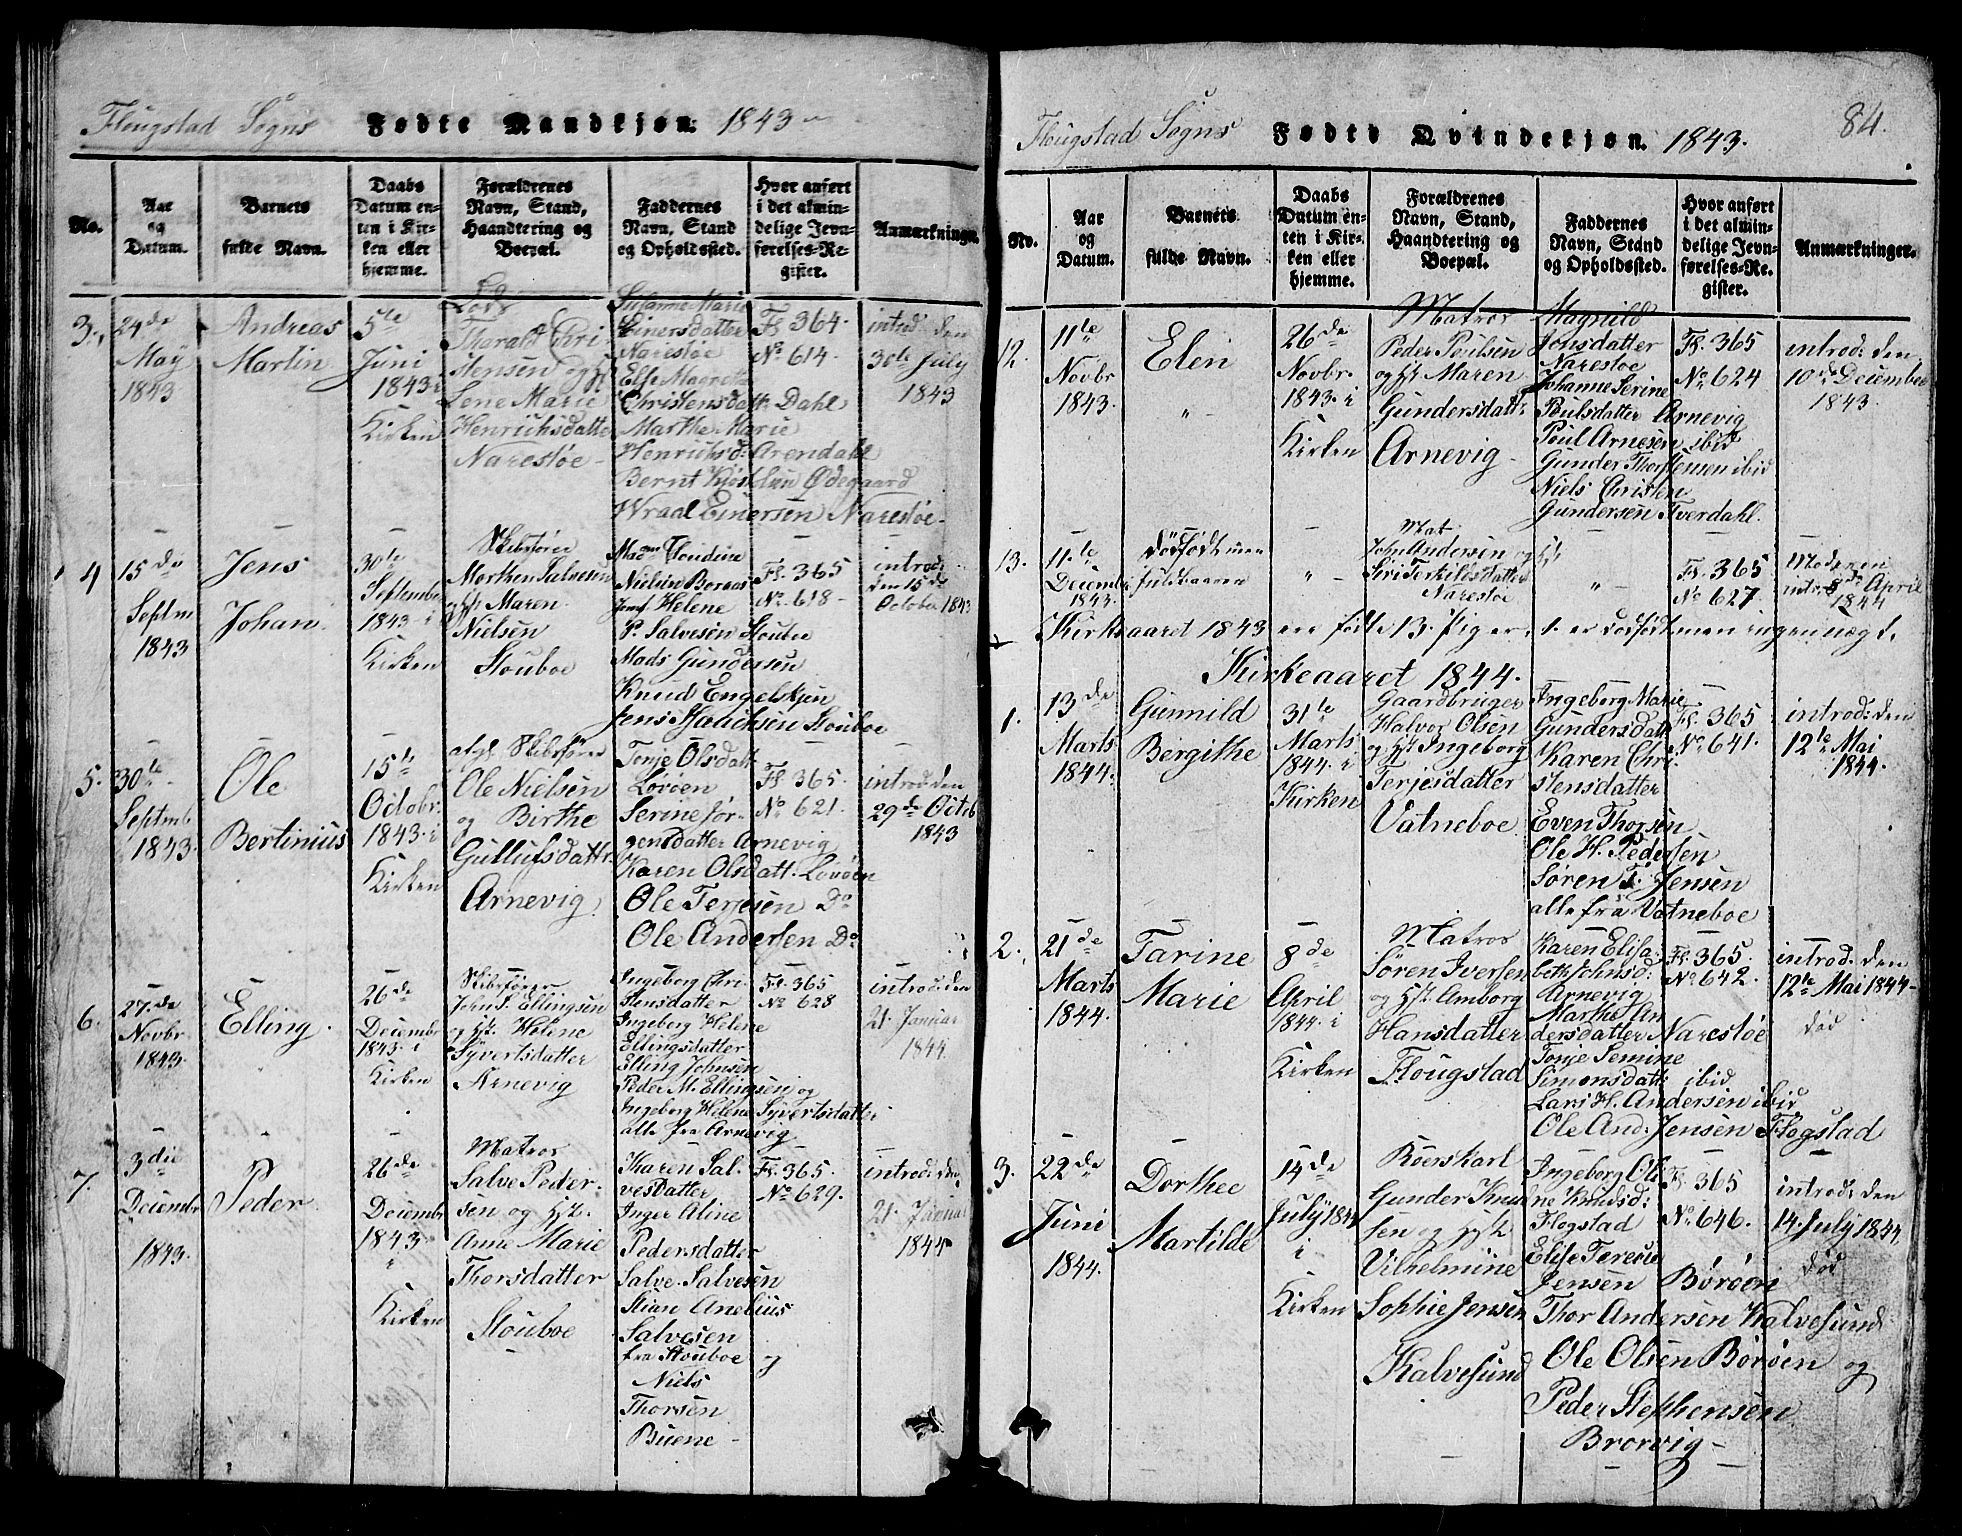 Flougstad Sogns Fødte Mandkjøn: 1843
No.
Aar
og
Datum.
Barnets
fulde Navn.
Daabs
Datum en-
ten i Kir-
ken eller
hjemme.
Forældrenes
Navn, Stand,
Haandtering og
Boepæl.
Faddernes
Navn, Stand
og Opholdssted.
Hvor anført
i det almin-
delige Jevn-
førelses-Re-
gister.
Anmærkninger.
3.
24de
May
1843
Andreas
Martin
5te
Juni
1843 i
Kirken
Lods
Tharald Chri
stensen og H
Lene Marie
Henrichsdatter
Narestøe
Susanne Marie
Einersdatter
Narestøe
Else Magrete
Christensdatt: Dahl
Marthe Marie
Henrichsd: Arendahl
Bernt Ødegaard
Wraal Einersen Narestøe
Fl. 364.
No 614.
introd: den
30te July
1843
4
15de
Septm
1843
Jens
Johan
30te
Septembr
1843 i
Kirken
Skibsfører
Morthen Salvesen
og H: Maren
Nielsen
Stouboe
Nielsen Boraas
Jomf Helene
P. Salvesen Stouboe
Mads Gundersen
Knud Engelskjøn
Jens Stouboe
Fl. 365
No 618
introd:
den 15de
October 1843
5.
30te
Septmb
1843.
Ole
Bertinius
15te
Octobr.
1843 i
Kirken
Skibsfører
Ole Nielsen
og Birthe
Gullufsdattr.
Arnevig
Tonje Olsdatt
Løvøen
Serine Jør-
gensdatter Arnevig
Karen Olsdatt. Løvøen
Ole Terjesen Do
Ole Andersen Do
Fl. 365.
No 621.
introd den
29de Octb
1843
6.
27de
Novbr
1843.
Elling.
26de
Decembr
1843. i
Kirken
Skibsfører
John S. Ellingsen
og H: Helene
Syvertsdatter
Arnevig
Ingeborg Chri
stensdatter
Ingeborg Helene
Ellingsdatter
Elling Johnsen
Peder M. Ellingsen og
Ingeborg Helene Syvertsdatter
alle fra Arnevig
Fl. 365
No 628
introd: den
21. Januar
1844.
7.
3die
Decembr
1843.
Peder
26de
Decembr
1843
Kirken
Matros
Salve Peder-
sen og H:
Anne Marie
Thorsdatter
Stouboe
Karen Sal-
vesdatter
Inger Aline
Pedersdatter
Salve Salvesen
Stian Anelius
Salvesen
fra Stouboe og
Niels
Thorsen
Buene
Fl. 365.
No 629.
introd: den
21. Januar
1844
Flougstad Sogns Fødte Qvindekjøn. 1843.
84.
No.
Aar
og
Datum.
Barnets
fulde Navn.
Daabs
Datum en-
ten i Kir-
ken eller
hjemme.
Forældrenes
Navn, Stand,
Haandtering og
Boepæl.
Faddernes
Navn, Stand
og Opholdssted.
Hvor anført
i det almin-
delige Jevn-
førelses-Re-
gister.
Anmærkninger.
12.
11te
Novbr
1843.
Elen
26de
Novbr.
1843. i
Kirken
Matros
Peder Poulsen
og H: Maren
Gundersdatt:
Arnevig
Magnild
Johsdatter
Narestøe
Johanne Serine
Poulsdatter Arnevig
Poul Arnesen ibid
Gunder Thorstensen ibid
Niels Christen
Gundersen Tverdahl.
Fl. 365
No 624
introd: den
10de December
1843.
13.
11te
Decembr
1843.
dødfødt men
fuldbaaren
Mat
John Andersen og H:
Siri Terkildsdatter
Narestøe
Fl. 365
No 627
Moderen
intr: 8de April
1844
I Kirkeaaret 1843 ere fødte 13 Piger, 1 er dødfødt men ingen uægte.
Kirkeaaret 1844.
1.
13de
Marts
1844.
Gunnild
Bergithe
31te
Marts
1844. i
Kirken
Gaardbruger
Halvor Olsen
og H: Ingeborg
Terjesdatter
Vatneboe
Ingeborg Marie
Gundersdatt
Karen Chri
stensdatter
Even Thorsen
Ole H. Pedersen
Søren T. Jensen
alle fra Vatneboe
Fl. 365
No 641.
introd: den
12te Mai
1844.
2.
21de
Marts
1844.
Tarine
Marie
8de
April
1844. i
Kirken
Matros
Søren Iversen
og H: Amborg
Hansdatter
Flougstad
Karen Elisa-
beth Johnsd:
Arnevig
Marthe An
dersdatter Narestøe
Tonje Semine
Simonsdatt: ibid
Lars H. Andersen ibid
Ole And. Jensen Flogstad
Fl. 365.
No 642.
introd: den
12te Mai 1844
død
3.
22de
Juni
1844.
Dorthee
Martilde
14de
July 1844
i
Kirken
Røerskarl
Gunder Knud
sen og H:
Vilhelmine
Sophie Jensen
Kalvesund
Ingeborg Ole
ne Knudsd:
Flogstad
Elise Terecie
Jensen Børøen
Thor Andersen Kalvesund
Ole Olsen Børøen og
Peder Stephensen
Brorvig
Fl. 365
No 646.
introd: den
14. July 1844.
død